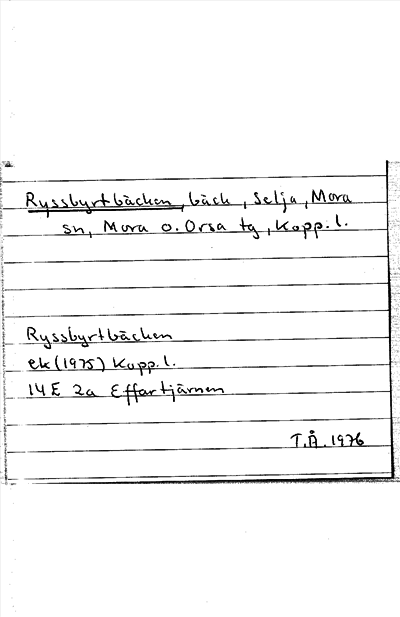 Ryssbyrtbäcken, bäck, Selja, Mora
sn, Mora o. Orsa tg, Kopp. l.
Ryssbyrtbäcken
ek (1975) Kopp. l.
14E 2a Effartjärnen
T.Å. 1976